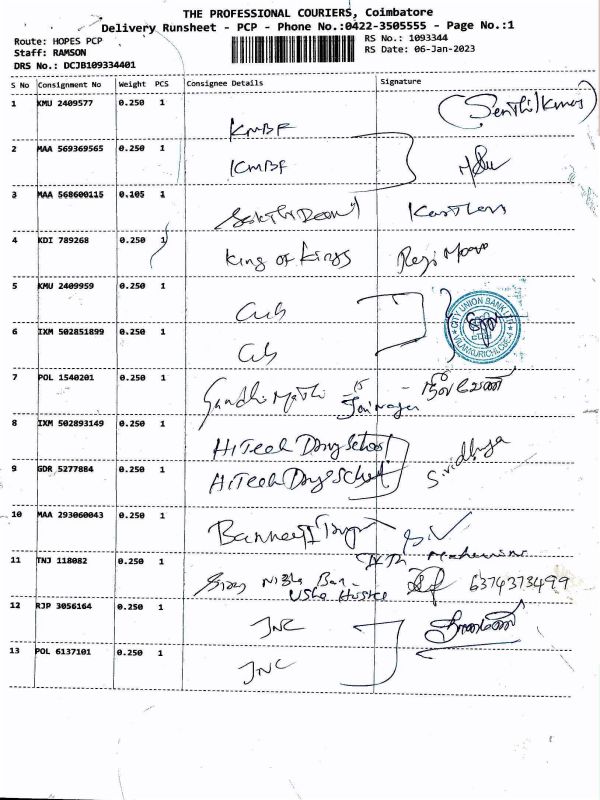 THE PROFESSIONAL COURIERS, Coimbatore
Delivery Runsheet - PCP - Phone No.:0422-3505555 - Page No.:1
Route: HOPES PCP
Staff: RAMSON
DRS No.: DCJB109334401
RS No.: 1093344
RS Date: 06-Jan-2023
S No Consignment No Weight PCS Consignee Details Signature
1 KMU 2409577 0.250 1 KMBF (Senthilkumar)
2 MAA 569369565 0.250 1 KMBF
3 MAA 568600115 0.105 1
4 KDI 789268 0.250 1 King of Kings
5 KMU 2409959 0.250 1 CUB
CITY UNION BANK LTD
VILANKURICHI, CBE-4
6 IXM 502851899 0.250 1 CUB
7 POL 1540201 0.250 1 Gandhi Mathi
8 IXM 502893149 0.250 1 HiTech Day School
9 GDR 5277884 0.250 1 HiTech Day School Srividhya
10 MAA 293060043 0.250 1
11 TNJ 118082 0.250 1 6374373499
12 RJP 3056164 0.250 1 JNC
13 POL 6137101 0.250 1 JNC